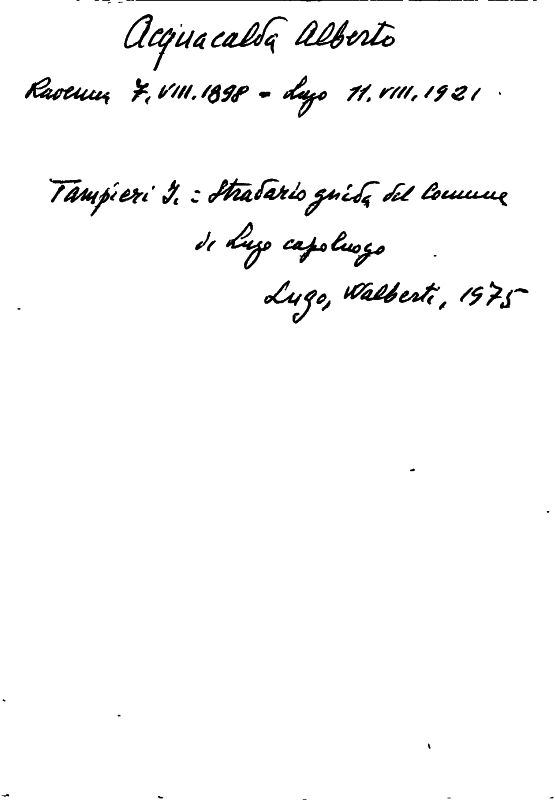 Acquacalda Alberto
Ravenna 7.VIII.1898 = Lugo 11.VIII.1921
Tampieri I. : Stradario guida del Comune
di Lugo capoluogo
Lugo, Walberti, 1975